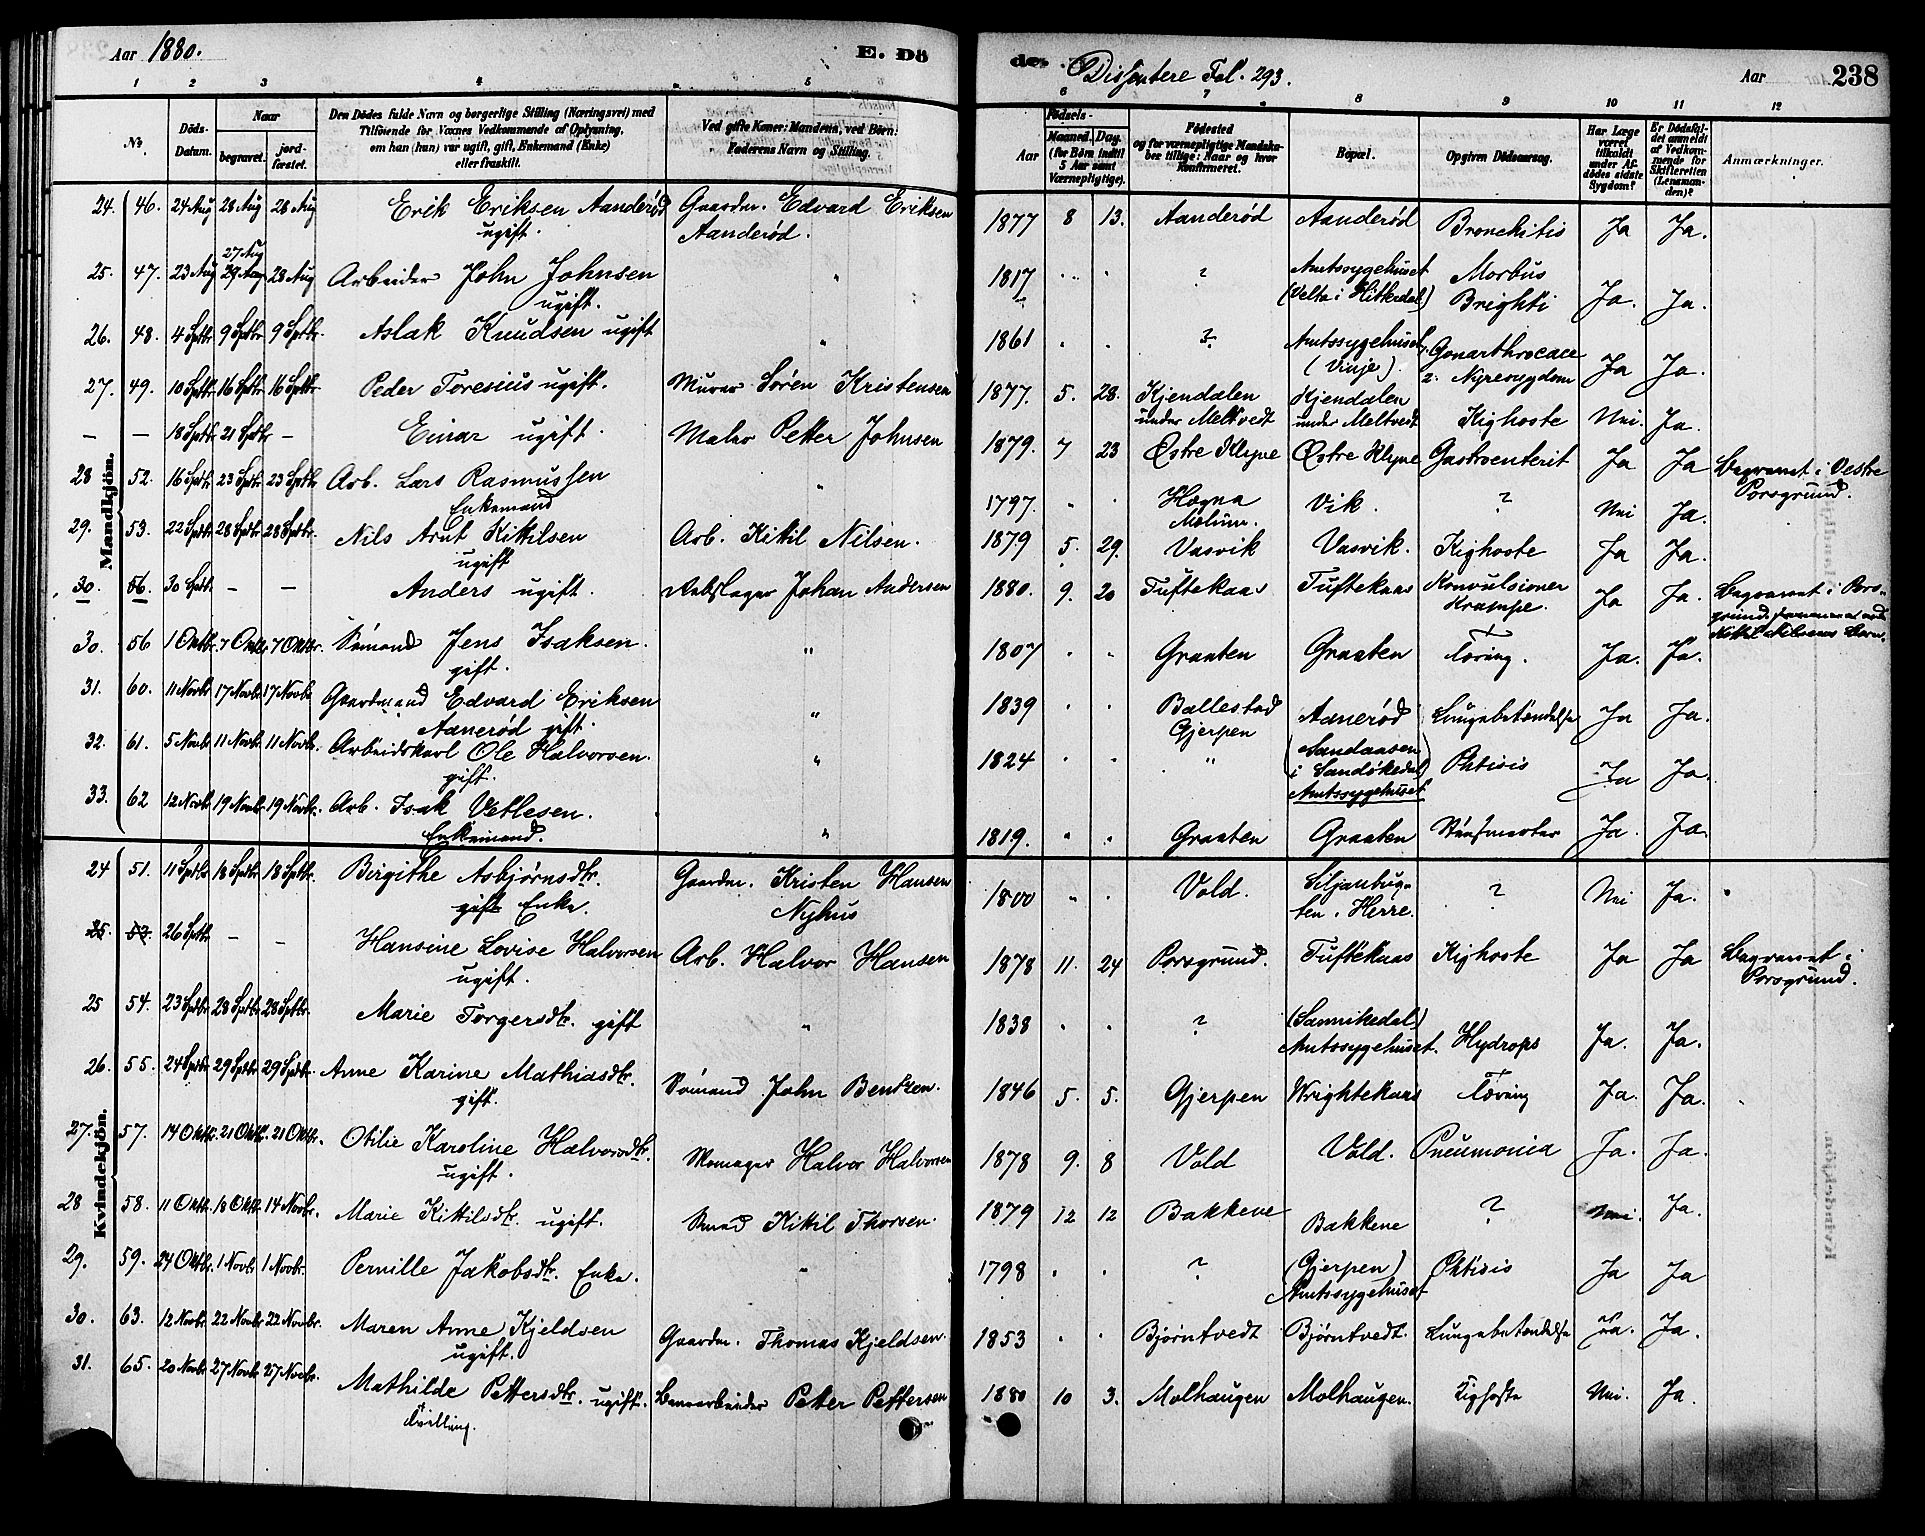 Aar 1880.
E. Dö
de.
Dissentere Fol. 293.
Aar
238
1 2 3 4 5
6 7 8 9 10 11 12
№
Döds-Datum.
Naar
begravet.
jord-fæstet.
Den Dödes fulde Navn og borgerlige Stilling (Næringsvei) med
Tilföiende for Voxnes Vedkommende af Oplysning,
om han (hun) var ugift, gift, Enkemand (Enke)
eller fraskilt.
Ved gifte Koner: Mandens, ved Börn:
Faderens Navn og Stilling.
Födsels-
Aar
Maaned. Dag.
(for Börn indtil 5 Aar samt Værnepligtige).
Födested
og for værnepligtige Mandskaber tillige: Naar og hvor Konfirmeret.
Bopæl.
Opgiven Dödsaarsag.
Har Læge været tilkaldt under Afdödes sidste Sygdom?
Er Dödsfaldet anmeldt af Vedkommende for Skifteretten (Lensmanden)?
Anmærkninger.
Mandkjön.
24. 46. 24 Aug 28 Aug 28 Aug Erik Eriksen Aanderød ugift. Gaardm. Edvard Eriksen Aanderød. 1877 8 13. Aanderød Aanderød Bronchitis Ja Ja.
25. 47. 23 Aug 27 Aug 29 Aug 28 Aug Arbeider John Johnsen ugift. " 1817 . . ? Amtssygehuset (Velta i Hitterdal) Morbus Brighti Ja. Ja.
26. 48. 4 Septbr 9 Septbr 9 Septbr. Aslak Knudsen ugift " 1861 . . ? Amtssygehuset (Vinje). Gonarthrocace 2: Nyresygdom Ja Ja.
27. 49. 10 Septbr 16 Septbr 16 Septbr Peder Toresius ugift. Murer Sören Kristensen 1877. 5. 28. Kjendalen under Meltvedt Kjendalen under Meltvedt Kighoste Nei. Ja.
— — 18 Septbr 21 Septbr — Einar ugift. Maler Petter Johnsen 1879. 7 23 Østre Klyve Østre Klyve Gastroenterit Ja Ja Begravet i Vestre Porsgrund.
28 52. 16 Septbr. 23 Septbr. 23 Septbr. Arb. Lars Rasmussen Enkemand " 1797. " . Hogna Molum. Vik. ? Nei Ja.
29. 53. 22 Septbr 28 Septbr 28 Septbr. Nils Arnt Kittilsen ugift Arb. Kittil Nilsen. 1879 5. 29. Vasvik Vasvik. Kighoste Ja Ja.
30. 56. 30 Septbr. — — Anders ugift. Rebslager Johan Andersen 1880. 9. 20 Tuftekaas Tuftekaas Konvulsioner Krampe. Ja Ja. Begravet i Porsgrund
30. 56 1 Oktbr. 7 Oktbr. 7 Oktbr. Sømand Jens Isaksen. gift. " 1807 . . Graaten Graaten Tæring. Ja. Ja.
31. 60. 11 Novbr 17 Novbr 17 Novbr Gaardmand Edvard Eriksen Aanerød gift " 1839 . . Ballestad Gjerpen Aanerød Lungebetændelse Ja Ja.
32. 61. 5 Novbr 11 Novbr. 11 Novbr. Arbeidskarl Ole Halvorsen. gift. " 1824 . . " (Sandaasen i Sandøkedal) Amtssygehuset Phtisis Ja Ja.
33. 62 12 Novbr. 19 Novbr. 19 Novbr. Arb. Isak Vetlesen. Enkemand. " 1819. " . Graaten Graaten Ja. Ja.
Kvindekjön.
24 51. 11 Septbr 18 Septbr. 18 Septbr. Birgithe Asbjørnsdtr. gift Enke. Gaardm. Kristen Hansen Nyhus 1800 " . Vold. Siljanbugten i Herre. ? Nei Ja.
25. 53. 26 Septbr — — Hansine Lovise Halvorsen ugift. Arb. Halvor Hansen 1878 11. 24 Porsgrund. Tuftekaas Kighoste Ja Ja Begravet i Porsgrund.
25 54. 23 Septbr. 28 Septbr 28 Septbr. Marie Torgersdtr. gift " 1838 . . ? (Sannikedal) Amtssygehuset. Hydrops Ja. Ja.
26. 55. 24 Septbr 29 Septbr 29 Septbr. Anne Karine Mathiasdtr. gift. Sømand John Bentzen. 1846 5. 5. Gjerpen Wrightekaas Tæring Ja. Ja.
27. 57. 14 Oktbr. 21 Oktbr. 21 Oktbr. Otilie Karoline Halvorsdtr. ugift. Skomager Halvor Halvorsen 1878 9. 8 Vold Vold. Pneumonia Ja. Ja.
28 58. 11 Oktbr. 18 Oktbr. 14 Novbr. Marie Kittilsdtr. ugift. Smed Kittil Thorsen. 1879 12 12 Bakkene Bakkene ? Nei. Ja.
29. 59. 24 Oktbr. 1 Novbr 1 Novbr. Pernille Jakobsdtr. Enke. " 1798 . . ? (Gjerpen) Amtssygehuset Phtisis Ja Ja
30. 63. 12 Novbr. 22 Novbr. 22 Novbr. Maren Anne Kjeldsen ugift. Gaardm. Thomas Kjeldsen. 1853 . . Bjørntvedt Bjørntvedt. Lungebetændelse Ja. Ja.
31. 65. 20 Novbr 27 Novbr. 27 Novbr. Mathilde Pettersdtr. ugift. Tvilling. Petter Pettersen 1880 10 3. Molhaugen Molhaugen. Kighoste Nei. Ja